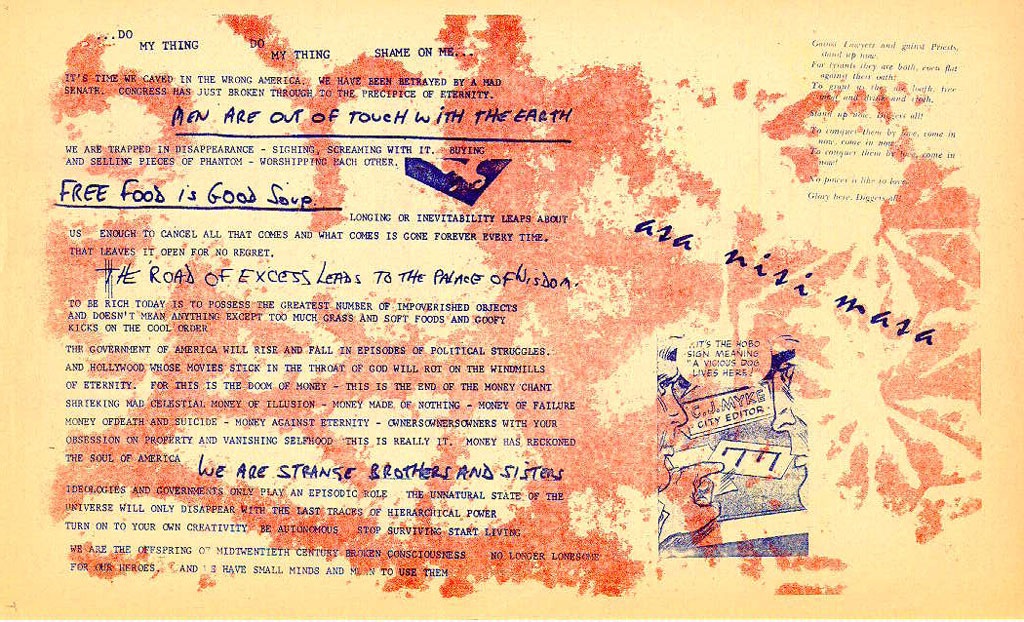 ...DO
MY THING
DO
MY THING
SHAME ON ME...
IT'S TIME WE CAVED IN THE WRONG AMERICA. WE HAVE BEEN BETRAYED BY A MAD
SENATE. CONGRESS HAS JUST BROKEN THROUGH TO THE PRECIPICE OF ETERNITY.
MEN ARE OUT OF TOUCH WITH THE EARTH
WE ARE TRAPPED IN DISAPPEARANCE - SIGHING, SCREAMING WITH IT. BUYING
AND SELLING PIECES OF PHANTOM - WORSHIPPING EACH OTHER.
FREE FOOD is GOOD Soup.
LONGING OR INEVITABILITY LEAPS ABOUT
US ENOUGH TO CANCEL ALL THAT COMES AND WHAT COMES IS GONE FOREVER EVERY TIME.
THAT LEAVES IT OPEN FOR NO REGRET.
THE ROAD OF EXCESS LEADS TO THE PALACE OF WISDOM.
TO BE RICH TODAY IS TO POSSESS THE GREATEST NUMBER OF IMPOVERISHED OBJECTS
AND DOESN'T MEAN ANYTHING EXCEPT TOO MUCH GRASS AND SOFT FOODS AND GOOFY
KICKS ON THE COOL ORDER
THE GOVERNMENT OF AMERICA WILL RISE AND FALL IN EPISODES OF POLITICAL STRUGGLES.
AND HOLLYWOOD WHOSE MOVIES STICK IN THE THROAT OF GOD WILL ROT ON THE WINDMILLS
OF ETERNITY. FOR THIS IS THE DOOM OF MONEY - THIS IS THE END OF THE MONEY CHANT
SHRIEKING MAD CELESTIAL MONEY OF ILLUSION - MONEY MADE OF NOTHING - MONEY OF FAILURE
MONEY OFDEATH AND SUICIDE - MONEY AGAINST ETERNITY - OWNERSOWNERSOWNERS WITH YOUR
OBSESSION ON PROPERTY AND VANISHING SELFHOOD THIS IS REALLY IT. MONEY HAS RECKONED
THE SOUL OF AMERICA
WE ARE STRANGE BROTHERS AND SISTERS
IDEOLOGIES AND GOVERNMENTS ONLY PLAY AN EPISODIC ROLE THE UNNATURAL STATE OF THE
UNIVERSE WILL ONLY DISAPPEAR WITH THE LAST TRACES OF HIERARCHICAL POWER
TURN ON TO YOUR OWN CREATIVITY BE AUTONOMOUS STOP SURVIVING START LIVING
WE ARE THE OFFSPRING OF MIDTWENTIETH CENTURY BROKEN CONSCIOUSNESS NO LONGER LONESOME
FOR OUR HEROES. AND HAVE SMALL MINDS AND TO USE THEM
Gainst Lawyers and gainst Priests,
stand up now.
For tyrants they are both, even flat
against their oath:
To grant us they are loath, free
meat and drink and cloth.
Stand up now, Diggers all!
To conquer them by love, come in
now, come in now
To conquer them by love, come in
now!
No power is like to love.
Glory here, Diggers all!
asa nisi masa
IT'S THE HOBO
SIGN MEANING
"A VICIOUS DOG
LIVES HERE!
C.J. MYKE
CITY EDITOR